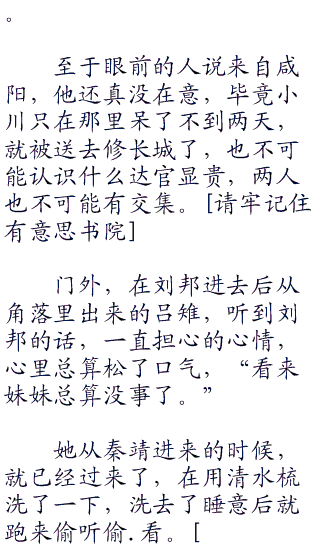 。
至于眼前的人说来自咸
阳，他还真没在意，毕竟小
川只在那里呆了不到两天，
就被送去修长城了，也不可
能认识什么达官显贵，两人
也不可能有交集。[请牢记住
有意思书院]
门外，在刘邦进去后从
角落里出来的吕雉，听到刘
邦的话，一直担心的心情，
心里总算松了口气，“看来
妹妹总算没事了。”
她从秦靖进来的时候，
就已经过来了，在用清水梳
洗了一下，洗去了睡意后就
跑来偷听偷.看。[